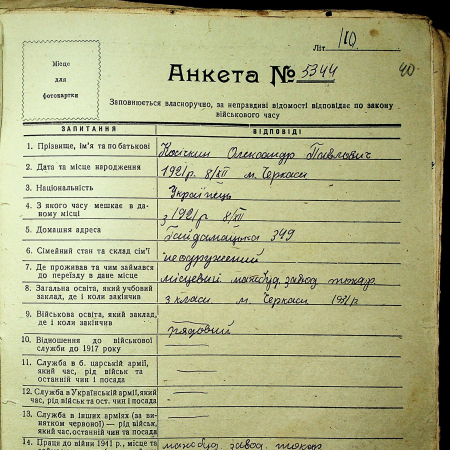 Літ 10
Місце
для
фотокартки
Анкета № 5344
40
Заповнюється власноручно, за неправдиві відомості відповідає по закону
військового часу
ЗАПИТАННЯ ВІДПОВІДІ
1. Прізвище, ім'я та по батькові Косічкин Олександр Павлович
2. Дата та місце народження 1921 р. 8/XII м. Черкаси
3. Національність Українець
4. З якого часу мешкає в да-
ному місці з 1921 р 8/XII
5. Домашня адреса Гайдамацька 349
6. Сімейний стан та склад сім'ї неодружений
7. Де проживав та чим займався
до переїзду в дане місце місцевий машбуд. завод токар
8. Загальна освіта, який учбовий
заклад, де і коли закінчив 7 класи м. Черкаси 1931 р
9. Військова освіта, який заклад,
де і коли закінчив рядовий
10. Відношення до військової
служби до 1917 року
11. Служба в б. царській армії,
який час, рід військ та
останній чин і посада
12. Служба в Українській армії, який
час, рід військ та ост. чин і посада
13. Служба в інших арміях (за ви-
нятком червоної) — рід військ,
який час, останній чин та посада
14. Праця до війни 1941 р., місце та машбуд. завод. токар